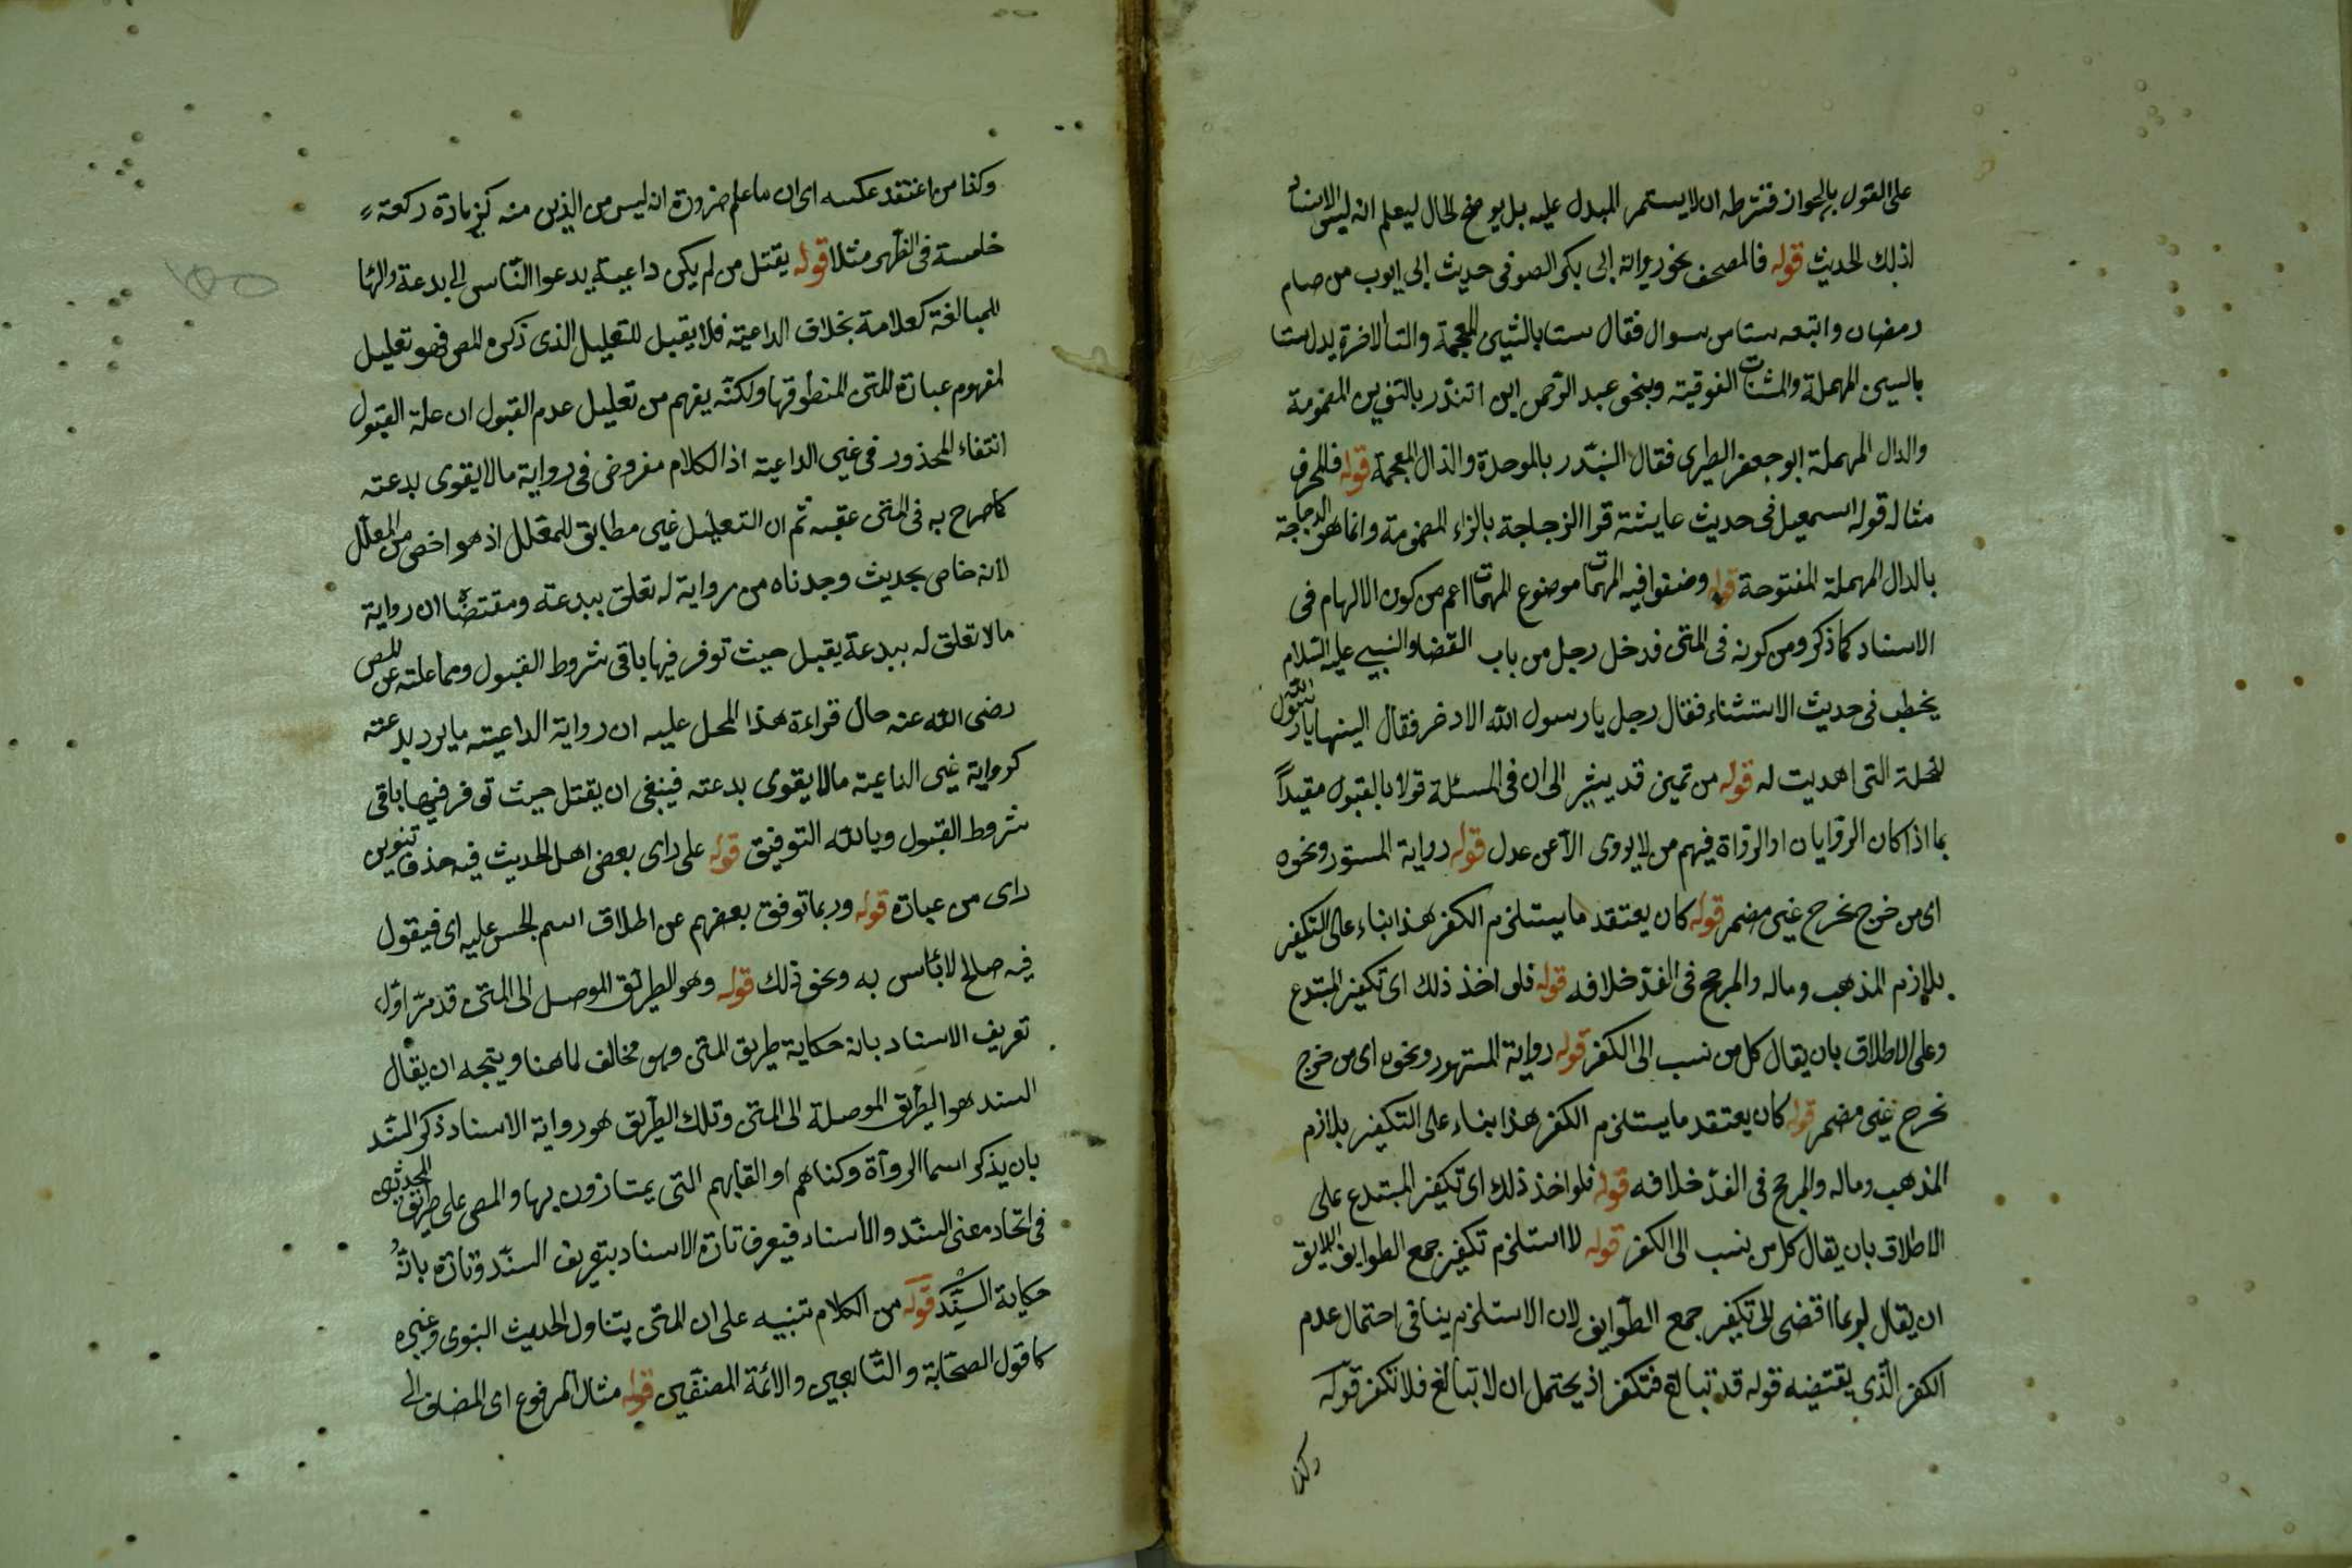 على القول بالجواز فشرطه ان لا يستمر المبدل عليه بل يوضح الحال ليعلم انه ليس الاسناد
لذلك الحديث قوله فالمصحف نحو رواية ابى بكر الصوفى حديث ابى ايوب من صام
رمضان واتبعه ستا من سوال فقال ستا بالشين المعجمة والتا الاخرة بدل ستا
بالسين المهملة والمثنات الفوقية وبنحو عبد الرحمن ابن اتندر بالتنوين المضمومة
والدال المهملة ابو جعفر الطبرى فقال البذر بالموحدة والذال المعجمة قوله فالمحرف
مثاله قوله اسمعيل فى حديث عايشة قرا الزجاجة بالزاء المضمومة وانما هو الدجاجة
بالدال المهملة المفتوحة قوله وصنفوا فيه المهمات موضوع المهمات اعم من كون الالهام فى
الاسناد كما ذكر ومن كونه فى المتن فدخل رجل من باب القضا والنبى عليه السلام
يخطب فى حديث الاستثناء فقال رجل يا رسول الله الا دخر فقال يا رسول الله
لنحلة التى اهديت له قوله من تميز قد يشير الى ان فى المسئلة قولا بالقبول مقيداً
بما اذا كان الروايان او الرواة فيهم من لا يروى الا عن عدل قوله رواية المستور ونحوه
اى من خرج نحرج غير مضمر قوله كان يعتقد ما يستلزم الكفر هذا بناء على التكفير
بلازم المذهب وماله والمرجح فى الفذ خلافه قوله فلو اخذ ذلك اى تكفير المبتدع
وعلى الاطلاق بان يقال كل من نسب الى الكفر قوله رواية المستهور ونحوه اى من خرج
نحرج غير مضمر قوله كان يعتقد ما يستلزم الكفر هذا بناء على التكفير بلازم
المذهب وماله والمرجح فى الفذ خلافه قوله فلو اخذ ذلك اى تكفير المبتدع على
الاطلاق بان يقال كل من ينسب الى الكفر قوله لا استلزم تكفير جمع الطوايف اللايق
ان يقال لربما اقتضى الى تكفير جمع الطوايف لان الاستلزم ينافى احتمال عدم
الكفر الذى يقتضيه قوله قد تبالغ فتكفر اذ يحتمل ان لا تبالغ فلا تكفر قوله
وكذا
وكذا من اعتقد عكسه اى ان ما علم ضرورة انه ليس من الذين منه كزيادة ركعة
خامسة فى الظهر مثلا قوله يقتل من لم يكن داعية يدعوا الناس الى بدعة والها
للمبالغة كعلامة بخلاف الداعية فلا يقبل للتعليل الذى ذكره المص فهو تعليل
لمفهوم عبارة المتن المنطوقها ولكنه يفهم من تعليل عدم القبول ان علة القبول
انتفاء المحذور فى غير الداعية اذ الكلام مفروض فى رواية مالا يقوى بدعته
كما صرح به فى المتن عقبه ثم ان التعليل غير مطابق للمعلل اذ هو اخص من المعلل
لانه خاص بحديث وجدناه من رواية له تعلق ببدعة ومقتضاه ان رواية
مالا تعلق له ببدعة يقبل حيث توفر فيها باقى شروط القبول ومما علمته عن المص
رضى الله عنه حال قراءة هذا المحل عليه ان رواية الداعية ما يرد بدعته
كرواية غير الداعية مالا يقوى بدعته فينبغى ان يقتل حيث توفر فيها باقى
شروط القبول وبالله التوفيق قوله على راى بعض اهل الحديث فيه حذف تنوين
راى من عبارة قوله وربما توفق بعضهم عن اطلاق اسم الحسن عليه اى فيقول
فيه صالح لا بئاس به ونحو ذلك قوله وهو الطريق الموصل الى المتن قد مر اول
تعريف الاسناد بانه حكاية طريق المتن وهو مخالف لما هنا ويتجه ان يقال
السند هو الطريق الموصلة الى المتن وتلك الطريق هو رواية الاسناد ذكر السند
بان يذكر اسما الرواة وكناهم او القابهم التى يمتازون بها والمص على طريق المحدثين
فى اتحاد معنى السند والاسناد فيعرف تارة الاسناد بتعريف السند وتارة بانه
حكاية السند قوله من الكلام تنبيه على ان المتن يتناول الحديث النبوى وغيره
كاقول الصحابة والتابعين والائمة المصنفين قوله مثال المرفوع اى المضاف الى